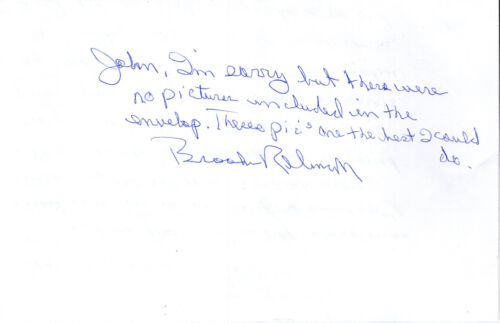 John, I'm sorry but there were
no pictures included in the
envelop. These pic's are the best I could
do.
Brooks Robinson